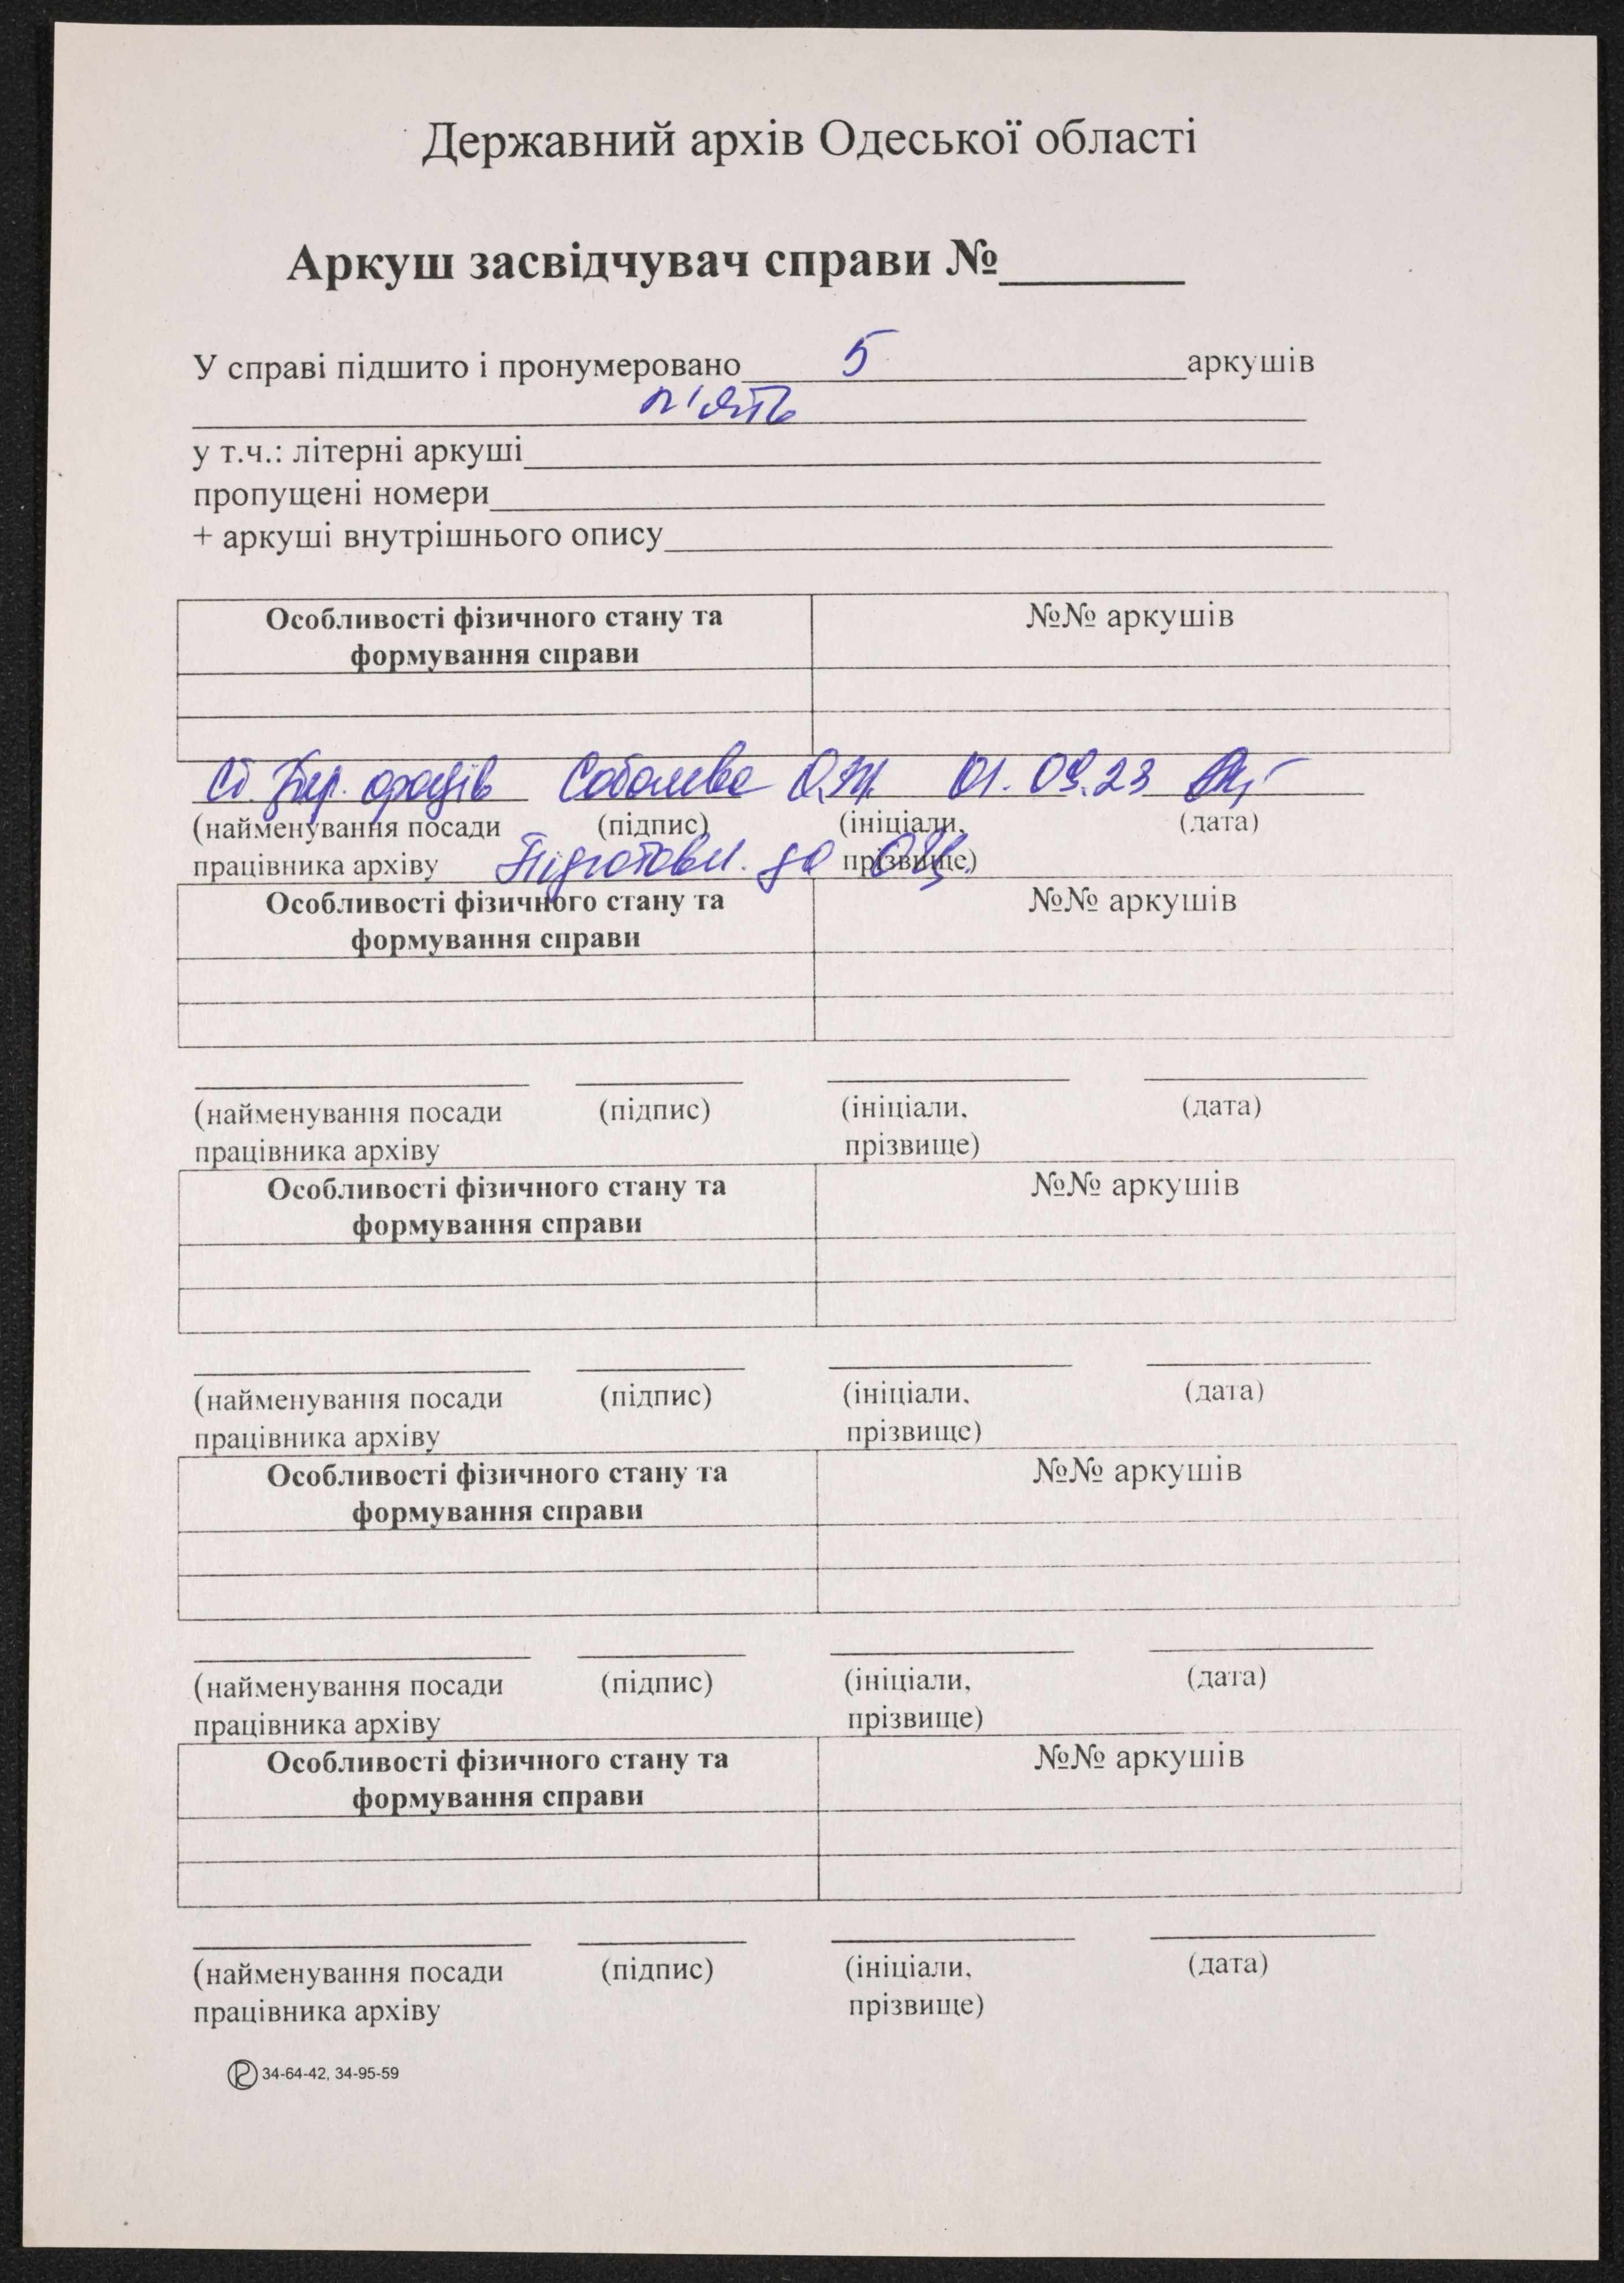 Державний архів Одеської області
Аркуш засвідчувач справи №______
У справі підшито і пронумеровано 5 аркушів
п'ять
у т.ч.: літерні аркуші
пропущені номери
+ аркуші внутрішнього опису
Особливості фізичного стану та формування справи №№ аркушів
Ст. фондів Соболева 01.09.23
(найменування посади працівника архіву (підпис) (ініціали, прізвище) (дата)
Підготовл. до ОЦ.
Особливості фізичного стану та формування справи №№ аркушів
(найменування посади працівника архіву (підпис) (ініціали, прізвище) (дата)
Особливості фізичного стану та формування справи №№ аркушів
(найменування посади працівника архіву (підпис) (ініціали, прізвище) (дата)
Особливості фізичного стану та формування справи №№ аркушів
(найменування посади працівника архіву (підпис) (ініціали, прізвище) (дата)
Особливості фізичного стану та формування справи №№ аркушів
(найменування посади працівника архіву (підпис) (ініціали, прізвище) (дата)
34-64-42, 34-95-59